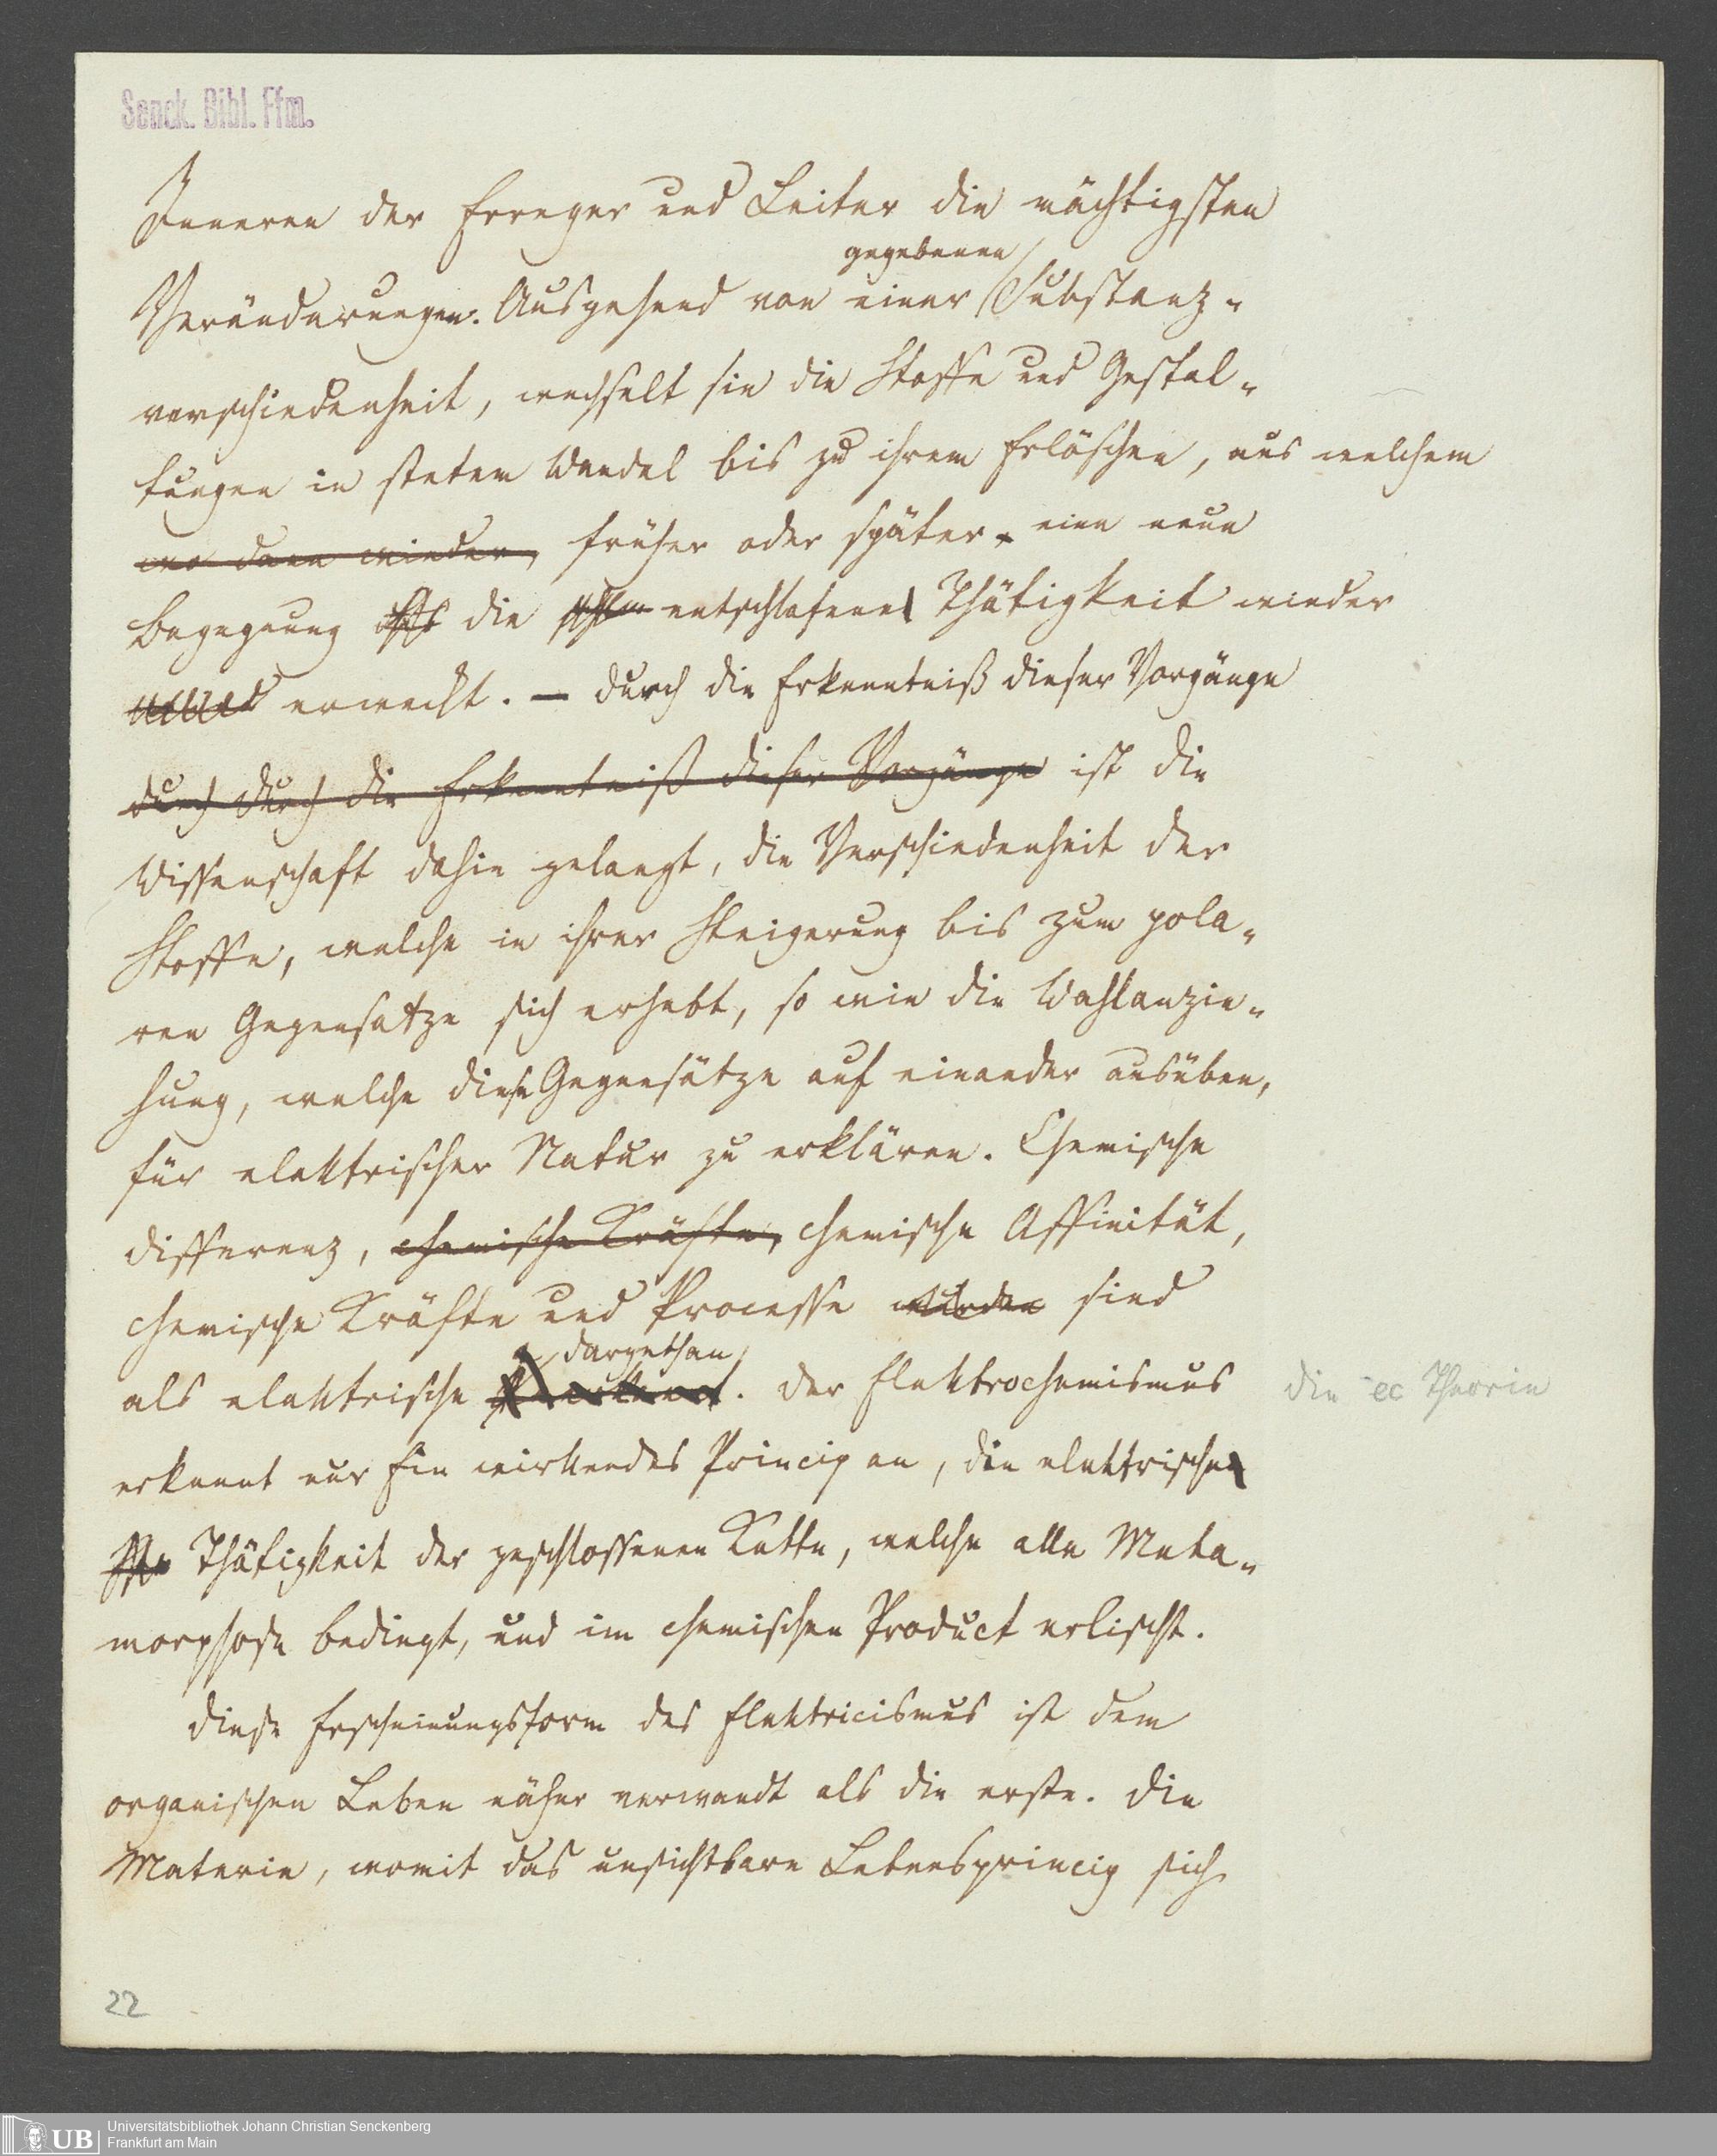 Senck. Bibl. Ffm.
Inneren der Erreger und Leiter die mächtigsten
gegebenen
Veränderungen. Ausgehend von einer Substanz-
verschiedenheit, wechselt sie die Stoffe und Gestal-
tungen in stetem Wandel bis zu ihrem Erlöschen, aus welchem
wo dann wieder, früher oder später eine neue
Begegnung die entschlafene Thätigkeit wieder
erweckt. — Durch die Erkenntniß dieser Vorgänge
durch durch die Erkenntniß dieser Vorgänge ist die
Wissenschaft dahin gelangt, die Verschiedenheit der
Stoffe, welche in ihrer Steigerung bis zum pola-
ren Gegensatze sich erhebt, so wie die Wahlanzie-
hung, welche diese Gegensätze auf einander ausüben,
für elektrischer Natur zu erklären. Chemische
Differenz, chemische Kräfte, chemische Affinität,
chemische Kräfte und Processe wurden sind
dargethan
als elektrische. Der Elektrochemismus
die ec Theorie
erkennt nur Ein wirkendes Princip an, die elektrische
Thätigkeit der geschlossenen Kette, welche alle Meta-
morphose bedingt, und im chemischen Product erlischt.
Diese Erscheinungsform des Elektricismus ist dem
organischen Leben näher verwandt als die erste. Die
Materie, womit das unsichtbare Lebensprincip sich
22
UB
Universitätsbibliothek Johann Christian Senckenberg
Frankfurt am Main